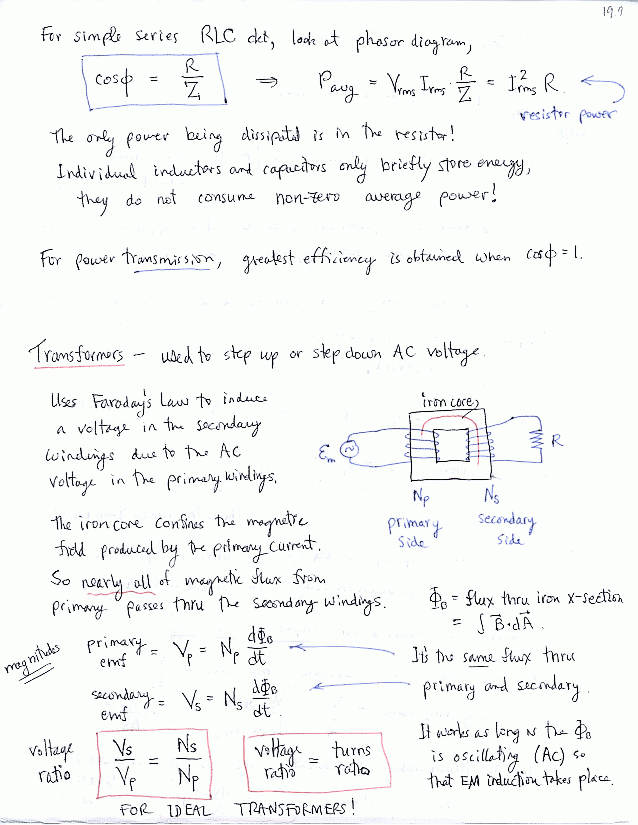 19.9
For simple series RLC ckt, look at phasor diagram,
cosϕ = R/Z ⇒ Pavg = Vrms Irms · R/Z = I²rms R.
resistor power
The only power being dissipated is in the resistor!
Individual inductors and capacitors only briefly store energy,
they do not consume non-zero average power!
For power transmission, greatest efficiency is obtained when cosϕ = 1.
Transformers – used to step up or step down AC voltage.
Uses Faraday's Law to induce
a voltage in the secondary
windings due to the AC
voltage in the primary windings.
iron core
ℰm
R
Np
Ns
primary
side
secondary
side
The iron core confines the magnetic
field produced by the primary current.
So nearly all of magnetic flux from
primary passes thru the secondary windings.
ΦB = flux thru iron x-section
= ∫ B⃗·dA⃗.
magnitudes
primary emf = Vp = Np dΦB/dt
It's the same flux thru
primary and secondary.
secondary emf = Vs = Ns dΦB/dt.
voltage ratio
Vs/Vp = Ns/Np
voltage ratio = turns ratio
It works as long as the ΦB
is oscillating (AC) so
that EM induction takes place.
FOR IDEAL TRANSFORMERS!